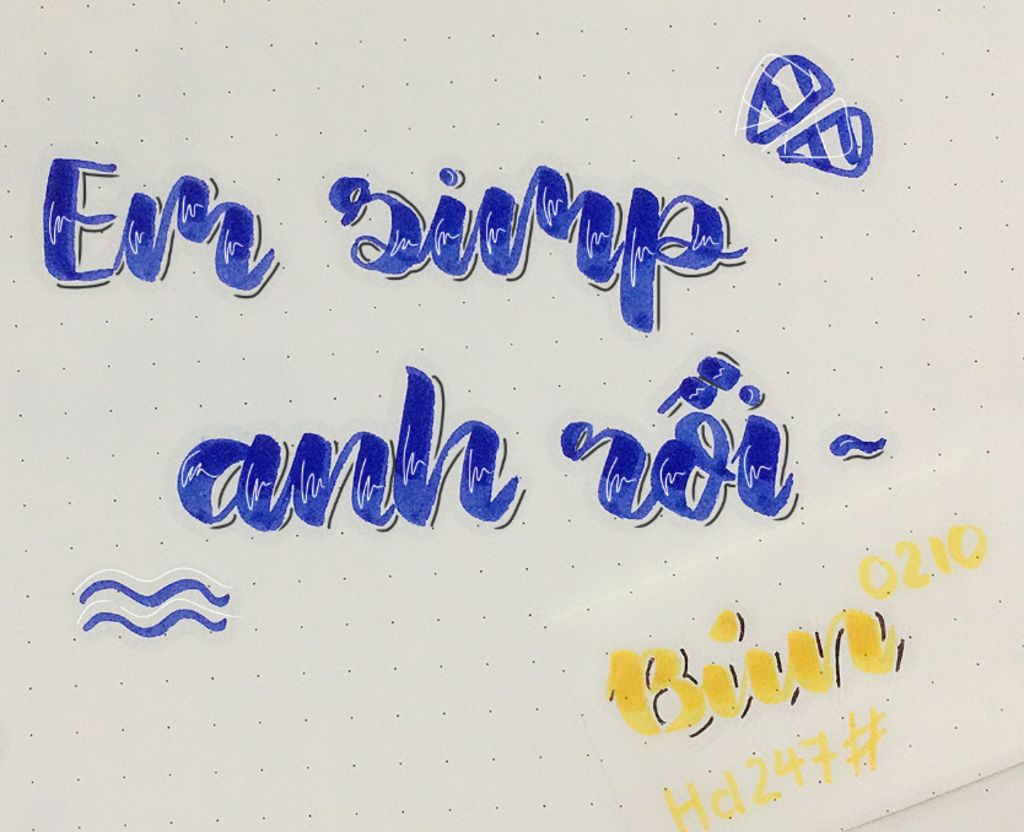 Em simp
anh rồi ~
0210
Biun
Hd247#